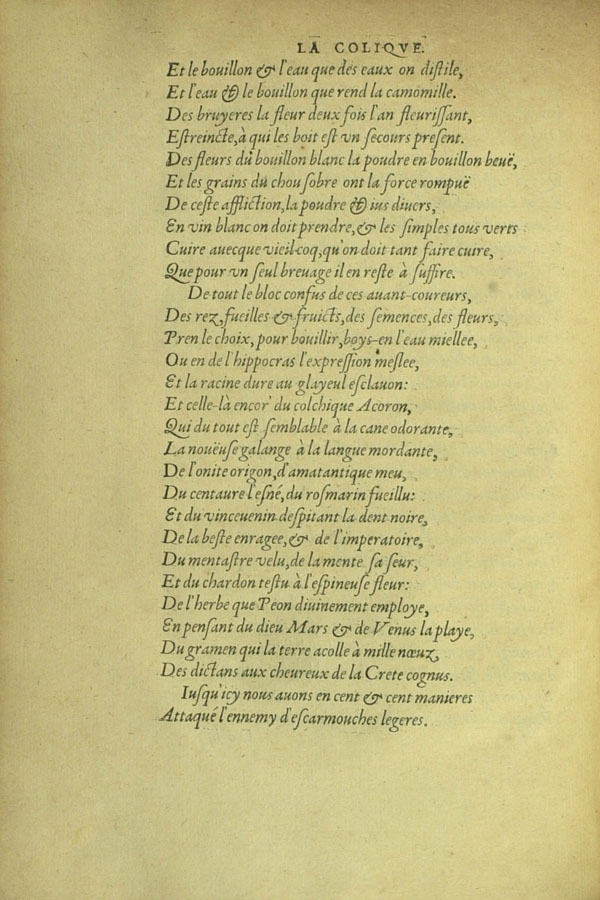 LA COLIQVE.
Et le bouillon & l'eau que des eaux on distile,
Et l'eau & le bouillon que rend la camomille.
Des bruyeres la fleur deux fois l'an fleurissant,
Estreincte, à qui les boit est vn secours present.
Des fleurs du bouillon blanc la poudre en bouillon beuë,
Et les grains du chou sobre ont la force rompuë
De ceste affliction, la poudre & ius diuers,
En vin blanc on doit prendre, & les simples tous verts
Cuire auecque vieil-coq, qu'on doit tant faire cuire,
Que pour vn seul breuage il en reste à suffire.
De tout le bloc confus de ces auant-coureurs,
Des rez, fueilles & fruicts, des semences, des fleurs,
Pren le choix, pour bouillir, boys-en l'eau miellee,
Ou en de l'hippocras l'expression meslee,
Et la racine dure au glayeul esclauon:
Et celle-là encor' du colchique Acoron,
Qui du tout est semblable à la cane odorante,
La nouëuse galange à la langue mordante,
De l'onite origon, d'amatantique meu,
Du centaure l'esné, du rosmarin fueillu:
Et du vinceuenin despitant la dent noire,
De la beste enragee, & de l'imperatoire,
Du mentastre velu, de la mente sa seur,
Et du chardon testu à l'espineuse fleur:
De l'herbe que Peon diuinement employe,
En pensant du dieu Mars & de Venus la playe,
Du gramen qui la terre acolle à mille nœuz,
Des dictans aux cheureux de la Crete cognus.
Iusqu'icy nous auons en cent & cent manieres
Attaqué l'ennemy d'escarmouches legeres.